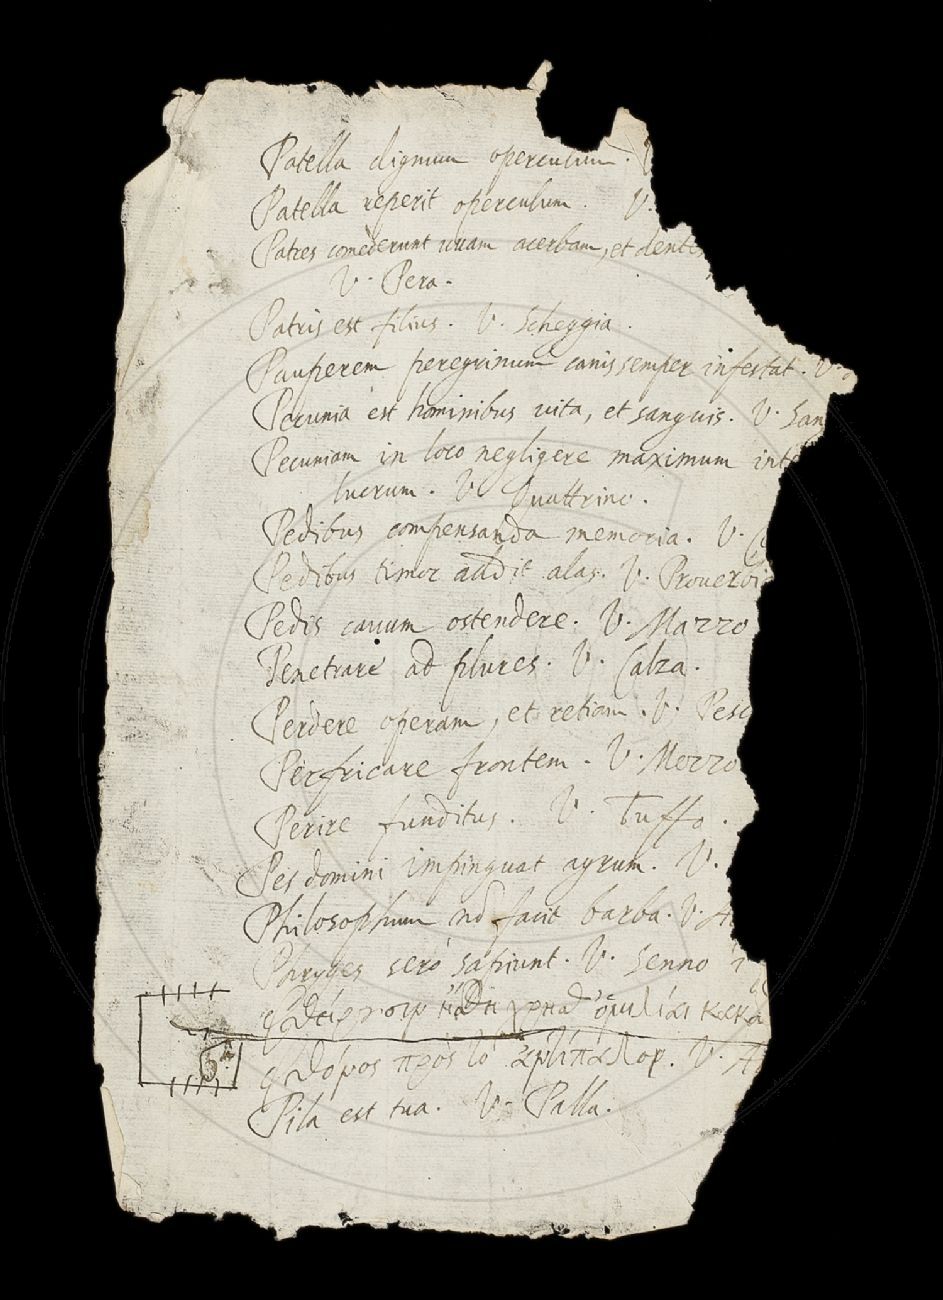 Patella dignum operculum.
Patella reperit operculum. V.
Patres comederunt uuam acerbam, et dent
V. Pera.
Patris est filius. V. Scheggia.
Pauperem peregrinum canis semper infestat. V.
Pecunia est hominibus uita, et sanguis. V. San
Pecuniam in loco negligere maximum int
lucrum. V. Quattrino.
Pedibus compensanda memoria. V.
Pedibus timor addit alas. V. Prouerbi
Pedis cauum ostendere. V. Mazzo
Penetrare ad plures. V. Calza.
Perdere operam, et retiam. V. Pesc
Perfricare frontem. V. Mozzo
Perire funditus. V. Tuffo.
Pes domini impinguat agrum. V.
Philosophum nō facit barba. V. A
Phryges serò sapiunt. V. Senno
ὁμιλίαι κακα
πρὸς V. A
Pila est tua. V. Palla.